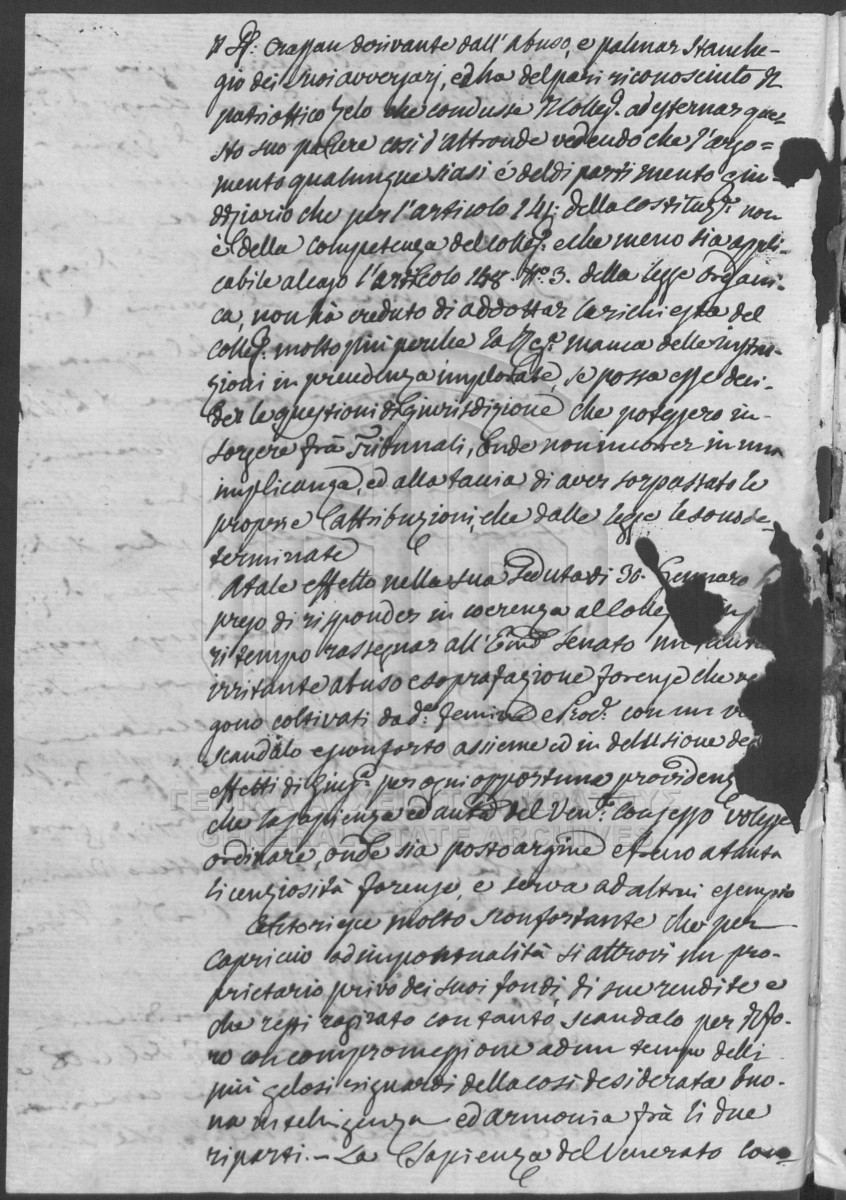 Il Sp: Crassan derivante dall'Abuso, e palmar stanche-
gio dei suoi avversarj, ed ha del pari riconosciuto il
patriottico zelo che condusse il Colleg. ad esternar que-
sto suo parere così d'altronde vedendo che l'argo=
mento qualunque siasi é del dipartimento giu-
diziario che per l'articolo della Costituz.e non
è della competenza del Colleg. e che meno sia appli-
cabile al caso l'articolo 148. No. 3. della legge Organi-
ca, non hà creduto di addottar la richiesta del
Colleg. molto più perche la manca delle instru-
zioni in precedenza implorate, se possa esse deci-
der le questioni di Giurisdizione che potessero in-
sorgere frà Tribunali, onde non incorrer in una
implicanza, ed alla taccia di aver sorpassato le
proprie attribuzioni, che dalle legge le sono de
terminate
A tale effetto nella sua Seduta di 30. Gennaro
preso di risponder in coerenza al Colleg.
ri tempo rassegnar all'Emo. Senato un tanto
irritante abuso e soprafazione forense che ve
gono coltivati da d.e femine e Proc.i con un
scandalo e sconforto assieme ed in delusione de
effetti di per ogni opportuna providenz
ΓΕΝΙΚΑ ΑΡΧΕΙΑ ΤΟΥ ΚΡΑΤΟΥΣ
che la sapienza ed auta. del Ven.o Consesso volesse
GENERAL STATE ARCHIVES
ordinare, onde sia posto argine e freno a tanta
licenziosità forense, e serva ad altrui esempio
molto sconfortante che per
capriccio ad impontualità si attrovi un pro-
prietario privo dei suoi fondi, di sue rendite e
che resti ragirato con tanto scandalo per il fo-
ro con compromessione ad un tempo delli
più gelosi riguardi della così desiderata buo-
na intelligenza ed armonia frà li due
riparti. - La Sapienza del Venerato Con